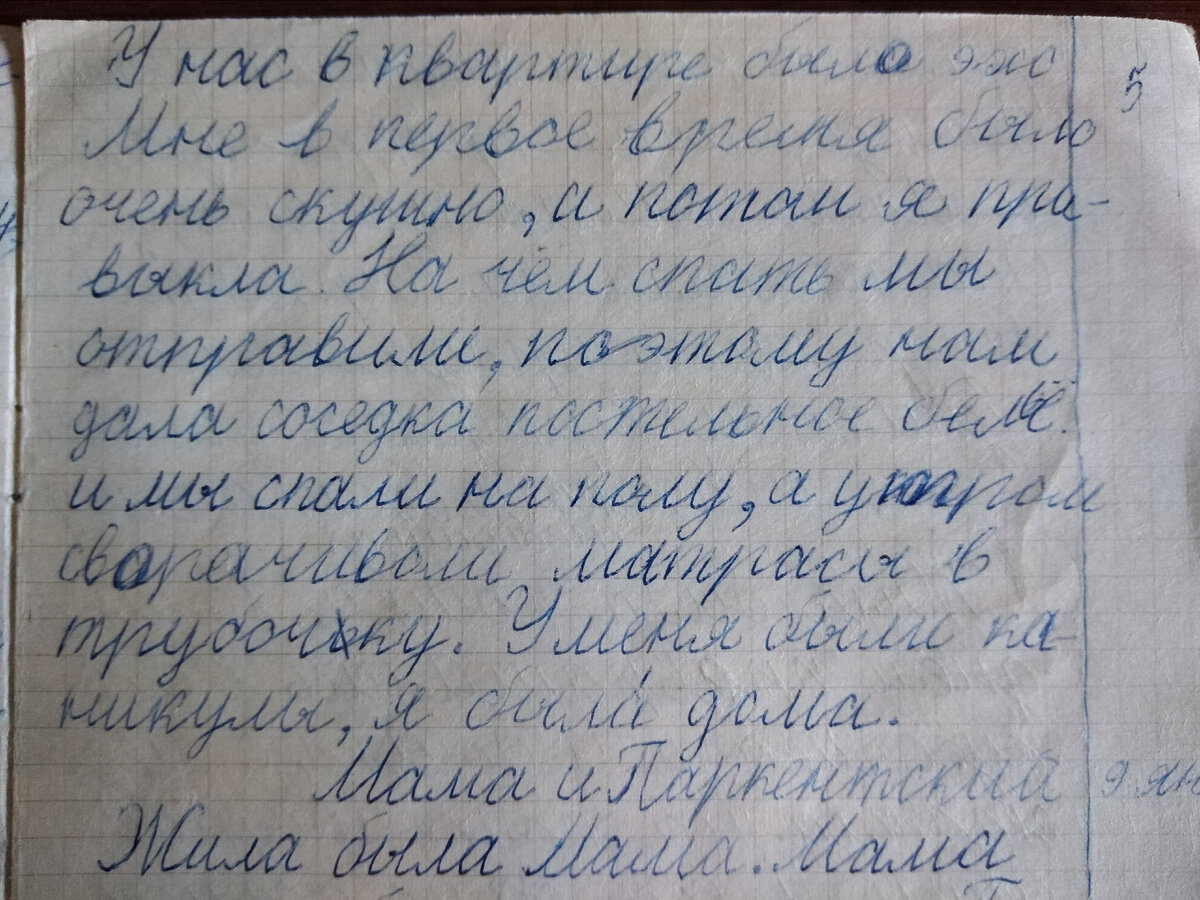 У нас в квартире было эхо
5
Мне в первое время было
очень скушно, а потом я при-
выкла. На чём спать мы
отправили, поэтому нам
дала соседка постельное бельё.
и мы спали на полу, а утром
сворачивали матрасы в
трубочку. У меня были ка-
никулы, я была дома.
Мама и Паркентский
9 ян
Жила была Мама. Мама